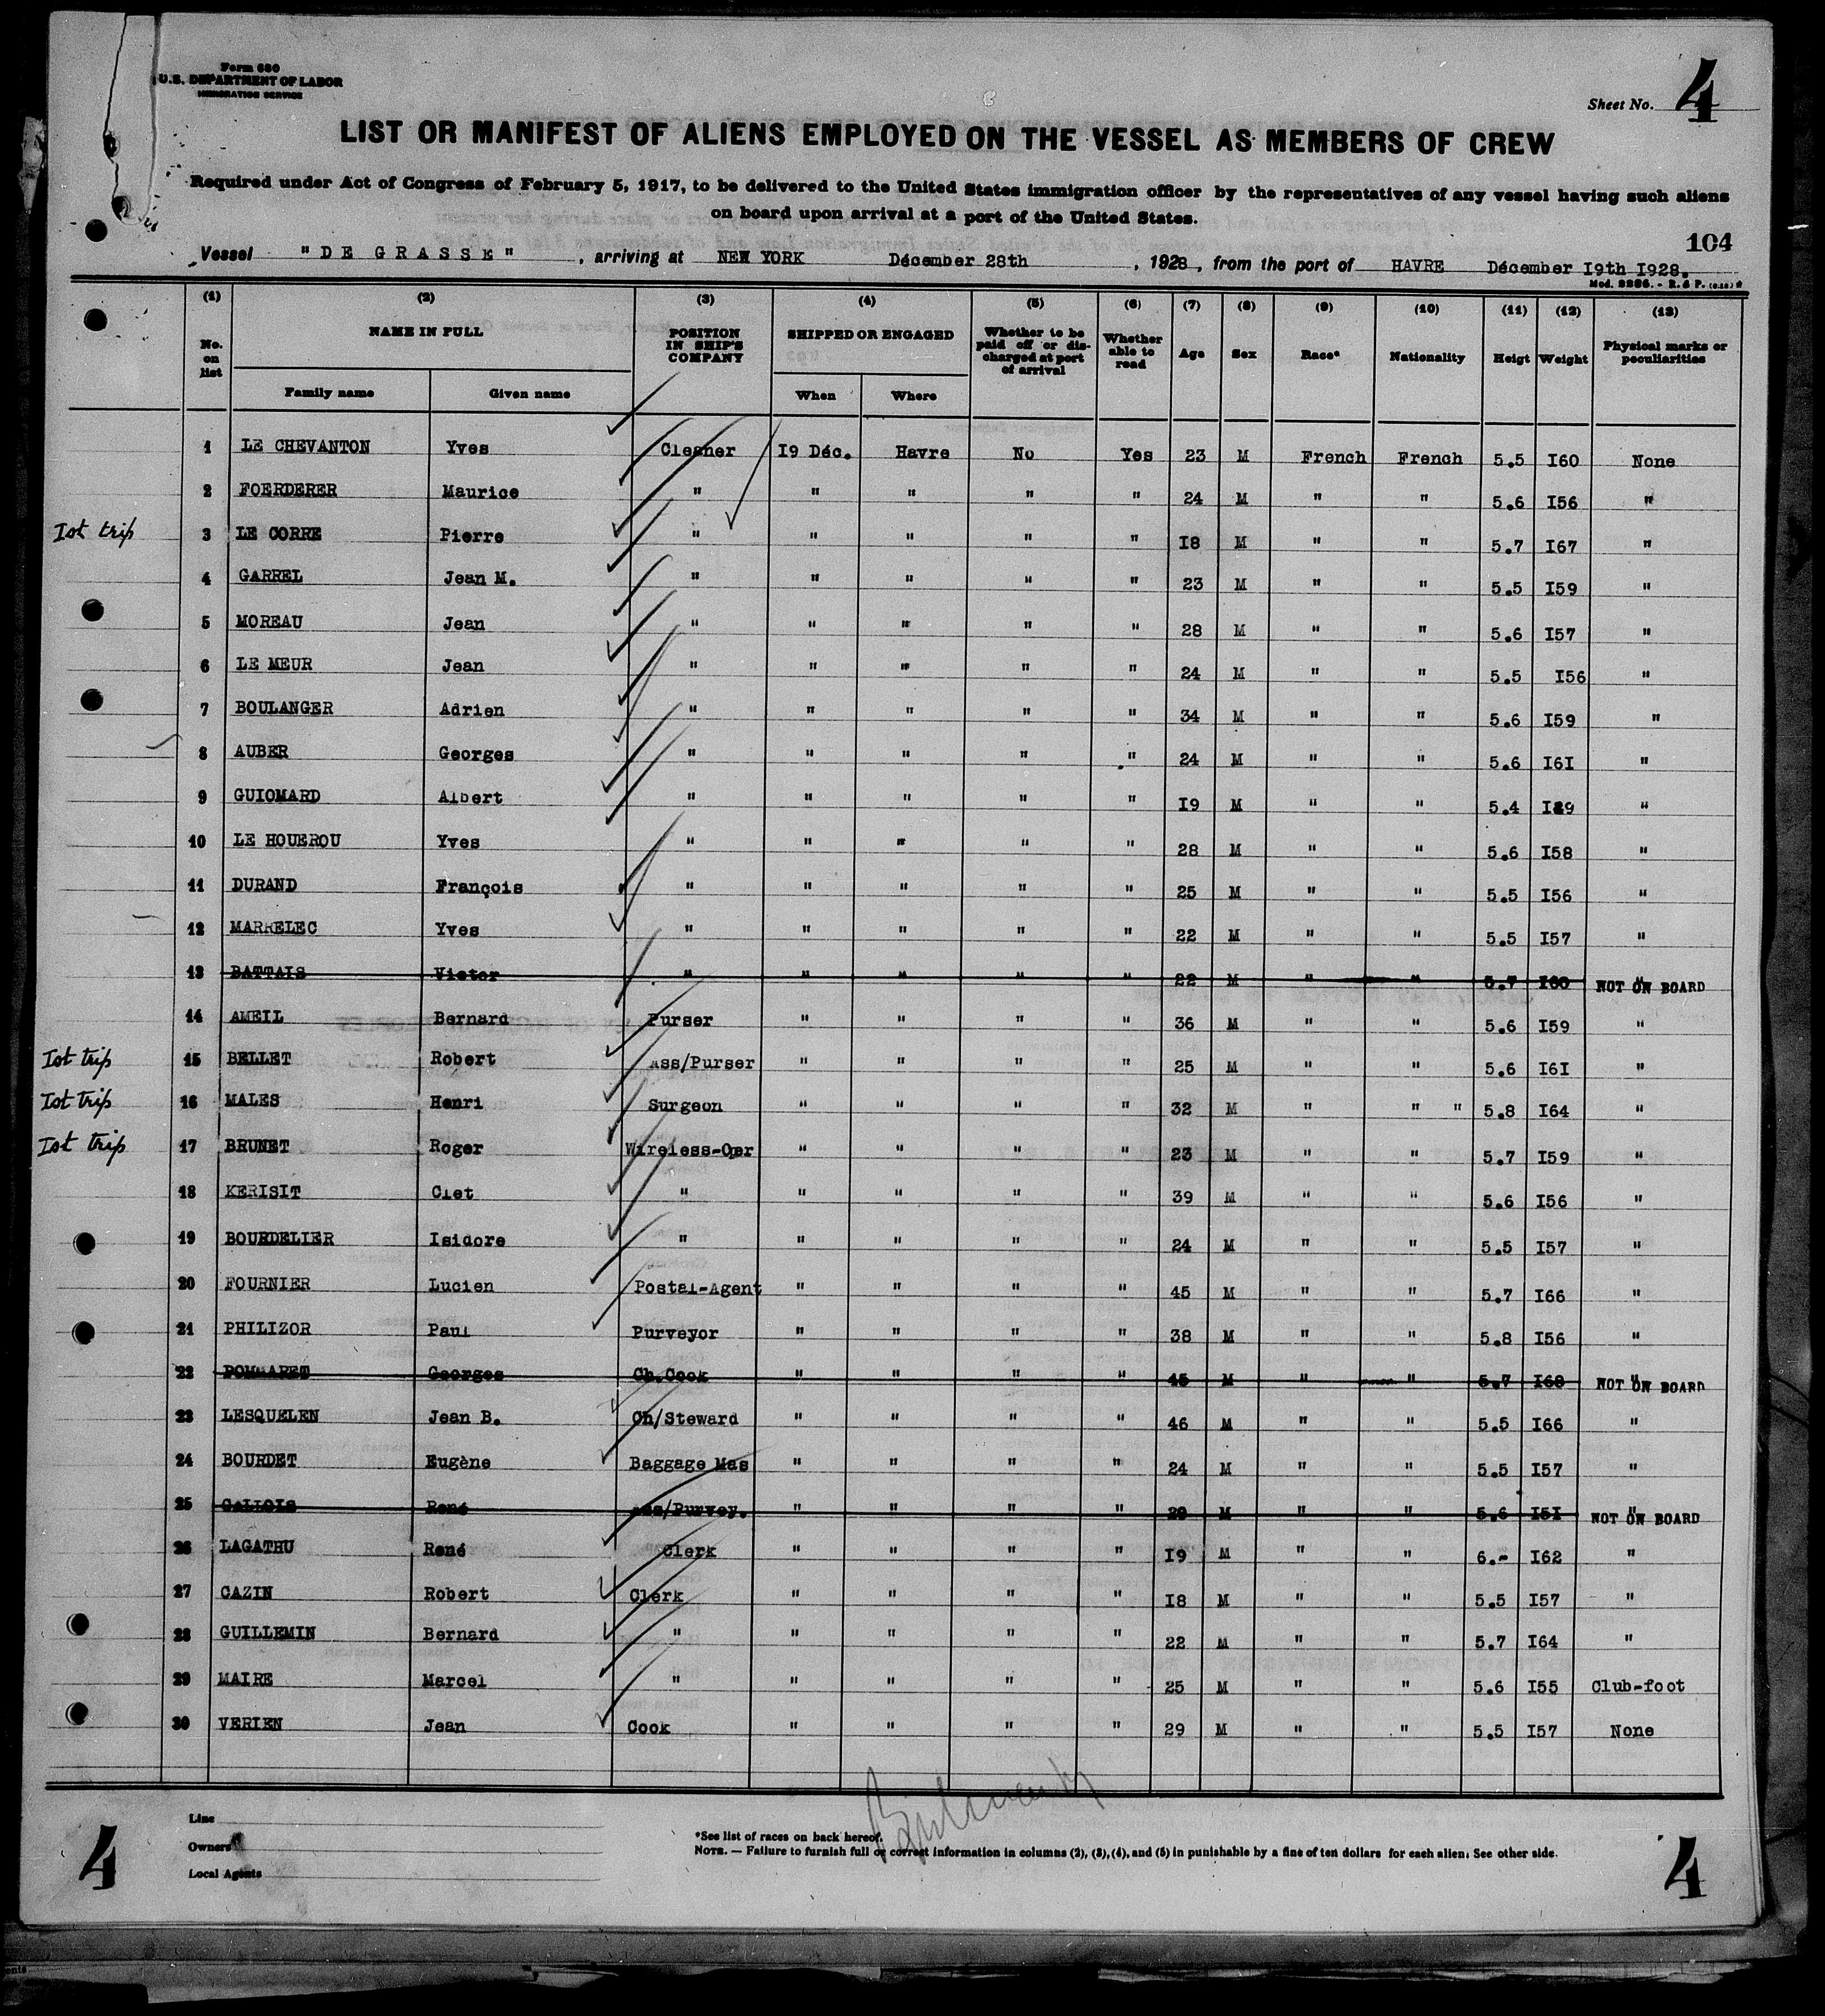 Form 680
U.S. DEPARTMENT OF LABOR
IMMIGRATION SERVICE
Sheet No. 4
LIST OR MANIFEST OF ALIENS EMPLOYED ON THE VESSEL AS MEMBERS OF CREW
Required under Act of Congress of February 5, 1917, to be delivered to the United States immigration officer by the representatives of any vessel having such aliens
on board upon arrival at a port of the United States.
104
Vessel "DE GRASSE", arriving at NEW YORK Décember 28th, 1928, from the port of HAVRE Décember I9th I928.
Mod. 2286. - R. & P.
(1) (2) (3) (4) (5) (6) (7) (8) (9) (10) (11) (12) (13)
No. on list NAME IN FULL POSITION IN SHIP'S COMPANY SHIPPED OR ENGAGED Whether to be paid off or discharged at port of arrival Whether able to read Age Sex Race* Nationality Heigt Weight Physical marks or peculiarities
Family name Given name When Where
1 LE CHEVANTON Yves Cleaner I9 Déc. Havre No Yes 23 M French French 5.5 I60 None
2 FOERDERER Maurice " " " " " 24 M " " 5.6 I56 "
Ist trip 3 LE CORRE Pierre " " " " " I8 M " " 5.7 I67 "
4 GARREL Jean M. " " " " " 23 M " " 5.5 I59 "
5 MOREAU Jean " " " " " 28 M " " 5.6 I57 "
6 LE MEUR Jean " " " " " 24 M " " 5.5 I56 "
7 BOULANGER Adrien " " " " " 34 M " " 5.6 I59 "
8 AUBER Georges " " " " " 24 M " " 5.6 I6I "
9 GUIOMARD Albert " " " " " I9 M " " 5.4 "
10 LE HOUEROU Yves " " " " " 28 M " " 5.6 I58 "
11 DURAND François " " " " " 25 M " " 5.5 I56 "
12 MARRELEC Yves " " " " " 22 M " " 5.5 I57 "
13 BATTAIS Victor " " " " " 22 M " " 5.7 I60 " NOT ON BOARD
14 AMEIL Bernard Purser " " " " 36 M " " 5.6 I59 "
Ist trip 15 BELLET Robert Ass/Purser " " " " 25 M " " 5.6 I6I "
Ist trip 16 MALES Henri Surgeon " " " " 32 M " " " 5.8 I64 "
Ist trip 17 BRUNET Roger Wireless-Oper " " " " 23 M " " 5.7 I59 "
18 KERISIT Clet " " " " " 39 M " " 5.6 I56 "
19 BOURDELIER Isidore " " " " " 24 M " " 5.5 I57 "
20 FOURNIER Lucien Postal-Agent " " " " 45 M " " 5.7 I66 "
21 PHILIZOR Paul Purveyor " " " " 38 M " " 5.8 I56 "
22 POMMARET Georges Ch.Cook " " " " 45 M " " 5.7 I68 " NOT ON BOARD
23 LESQUELEN Jean B. Ch/Steward " " " " 46 M " " 5.5 I66 "
24 BOURDET Eugène Baggage Mas " " " " 24 M " " 5.5 I57 "
25 GALLOIS René Ass/Purvey. " " " " 29 M " " 5.6 I5I " NOT ON BOARD
26 LAGATHU René Clerk " " " " I9 M " " 6.- I62 "
27 CAZIN Robert Clerk " " " " I8 M " " 5.5 I57 "
28 GUILLEMIN Bernard " " " " " 22 M " " 5.7 I64 "
29 MAIRE Marcel " " " " " 25 M " " 5.6 I55 Club-foot
30 VERIEN Jean Cook " " " " 29 M " " 5.5 I57 None
Line
Owners
Local Agents
*See list of races on back hereof.
NOTE. — Failure to furnish full or correct information in columns (2), (3), (4), and (5) in punishable by a fine of ten dollars for each alien. See other side.
4 4